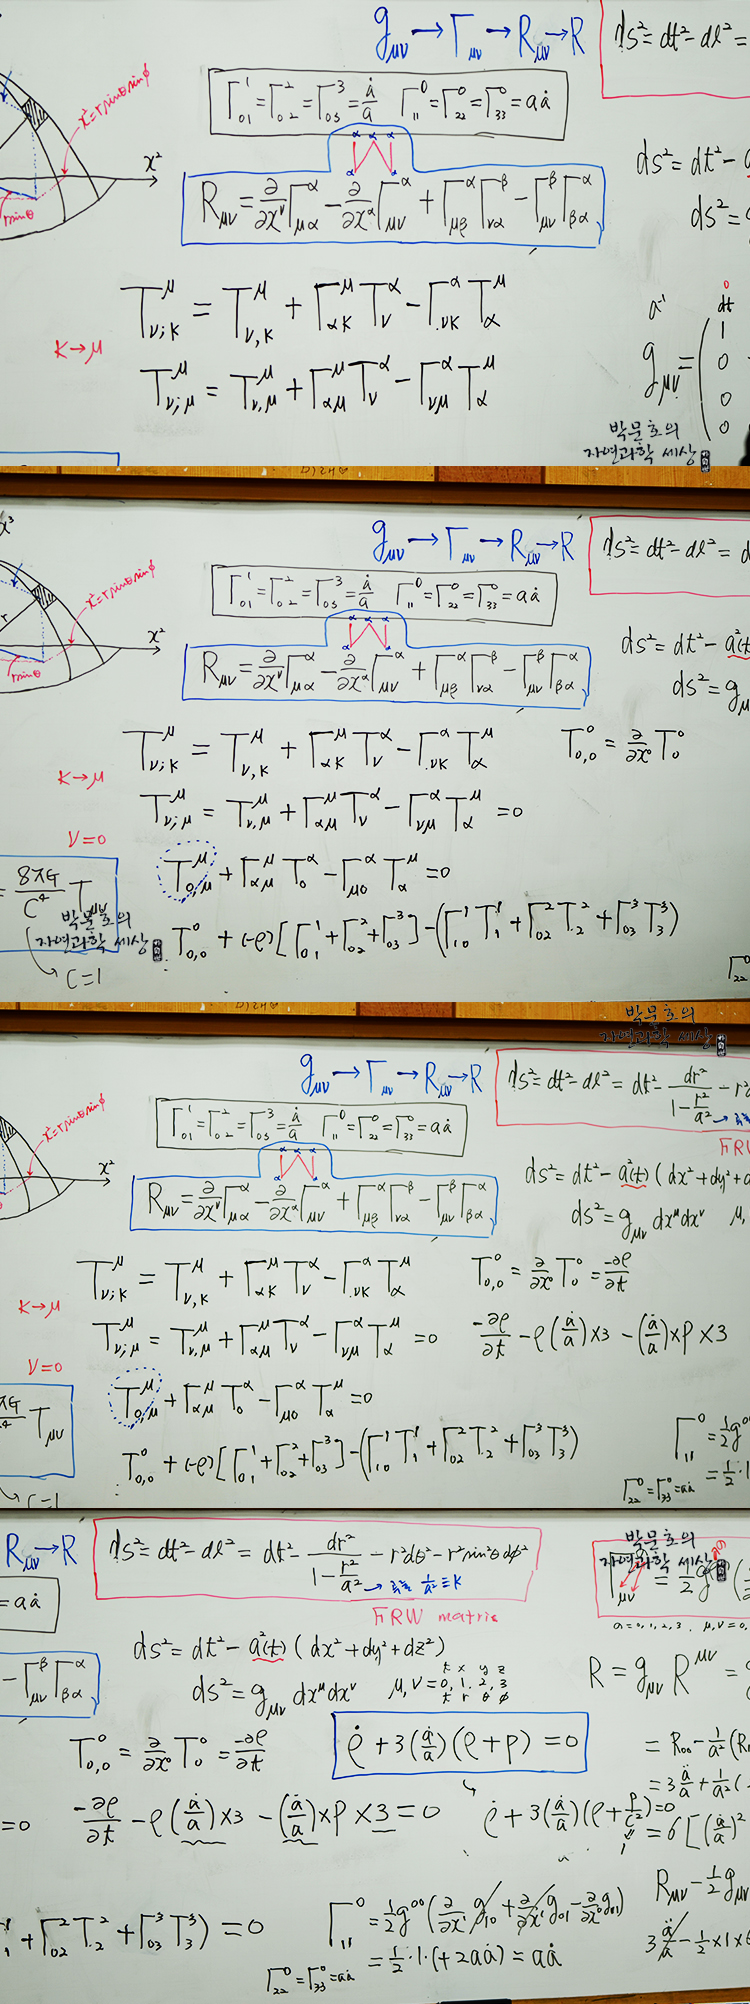 g_μν → Γ_μν → R_μν → R
ds² = dt² - dl² =
Γ¹₀₁ = Γ²₀₂ = Γ³₀₃ = ȧ/a Γ⁰₁₁ = Γ⁰₂₂ = Γ⁰₃₃ = aȧ
x² = r sinθ sinϕ
x²
r sinθ
α α α
α α
R_μν = ∂/∂x^ν Γ^α_μα - ∂/∂x^α Γ^α_μν + Γ^α_μβ Γ^β_να - Γ^β_μν Γ^α_βα
ds² = dt² - a
ds² = g
T^μ_ν;κ = T^μ_ν,κ + Γ^μ_ακ T^α_ν - Γ^α_νκ T^μ_α
κ → μ
T^μ_ν;μ = T^μ_ν,μ + Γ^μ_αμ T^α_ν - Γ^α_νμ T^μ_α
a⁻¹
0
dt
g_μν = ( 1
0
0
0
박문호의
자연과학 세상
x³
g_μν → Γ_μν → R_μν → R
ds² = dt² - dl² = d
Γ¹₀₁ = Γ²₀₂ = Γ³₀₃ = ȧ/a Γ⁰₁₁ = Γ⁰₂₂ = Γ⁰₃₃ = aȧ
x² = r sinθ sinϕ
x²
r
r sinθ
α α α
α α
R_μν = ∂/∂x^ν Γ^α_μα - ∂/∂x^α Γ^α_μν + Γ^α_μβ Γ^β_να - Γ^β_μν Γ^α_βα
ds² = dt² - a²(t)
ds² = g_μ
T^μ_ν;κ = T^μ_ν,κ + Γ^μ_ακ T^α_ν - Γ^α_νκ T^μ_α
T⁰₀,₀ = ∂/∂x⁰ T⁰₀
κ → μ
T^μ_ν;μ = T^μ_ν,μ + Γ^μ_αμ T^α_ν - Γ^α_νμ T^μ_α = 0
ν = 0
T^μ_0,μ + Γ^μ_αμ T^α_0 - Γ^α_μ0 T^μ_α = 0
= 8πG/C⁴ T
박문호의
자연과학 세상
T⁰₀,₀ + (-ρ)[Γ¹₀₁ + Γ²₀₂ + Γ³₀₃] - (Γ¹₁₀ T¹₁ + Γ²₀₂ T²₂ + Γ³₀₃ T³₃)
C = 1
Γ⁰₂₂
박문호의
자연과학 세상
g_μν → Γ_μν → R_μν → R
ds² = dt² - dl² = dt² - dr²/(1 - r²/a²) - r²d
Γ¹₀₁ = Γ²₀₂ = Γ³₀₃ = ȧ/a Γ⁰₁₁ = Γ⁰₂₂ = Γ⁰₃₃ = aȧ
x² = r sinθ sinϕ
x²
FRW
α α α
α α
R_μν = ∂/∂x^ν Γ^α_μα - ∂/∂x^α Γ^α_μν + Γ^α_μβ Γ^β_να - Γ^β_μν Γ^α_βα
ds² = dt² - a²(t) (dx² + dy² + d
ds² = g_μν dx^μ dx^ν μ,
T^μ_ν;κ = T^μ_ν,κ + Γ^μ_ακ T^α_ν - Γ^α_νκ T^μ_α
T⁰₀,₀ = ∂/∂x⁰ T⁰₀ = -∂ρ/∂t
κ → μ
T^μ_ν;μ = T^μ_ν,μ + Γ^μ_αμ T^α_ν - Γ^α_νμ T^μ_α = 0
-∂ρ/∂t - ρ(ȧ/a)×3 - (ȧ/a)×P×3
ν = 0
T^μ_0,μ + Γ^μ_αμ T^α_0 - Γ^α_μ0 T^μ_α = 0
πG/4 T_μν
T⁰₀,₀ + (-ρ)[Γ¹₀₁ + Γ²₀₂ + Γ³₀₃] - (Γ¹₁₀ T¹₁ + Γ²₀₂ T²₂ + Γ³₀₃ T³₃)
Γ⁰₁₁ = ½g⁰⁰
= ½·1
Γ⁰₂₂ = Γ⁰₃₃ = aȧ
C = 1
R_μν → R
ds² = dt² - dl² = dt² - dr²/(1 - r²/a²) - r²dθ² - r²sin²θdϕ²
1/a² ≡ K
박문호의
자연과학 세상
Γ_μν = ½g
α = 0, 1, 2, 3 . μ, ν = 0,
= aȧ
FRW matric
- Γ^β_μν Γ^α_βα
ds² = dt² - a²(t) (dx² + dy² + dz²)
ds² = g_μν dx^μ dx^ν
t x y z
μ, ν = 0, 1, 2, 3
t r θ ϕ
R = g_μν R^μν =
T⁰₀,₀ = ∂/∂x⁰ T⁰₀ = -∂ρ/∂t
ρ̇ + 3(ȧ/a)(ρ + p) = 0
= R₀₀ - 1/a² (R
= 3 ä/a + 1/a² (
= 0
-∂ρ/∂t - ρ(ȧ/a)×3 - (ȧ/a)×P×3 = 0
ρ̇ + 3(ȧ/a)(ρ + P/C²) = 0
= 6[(ȧ/a)²
R_μν - ½g_μν
+ Γ²₀₂ T²₂ + Γ³₀₃ T³₃) = 0
Γ⁰₁₁ = ½g⁰⁰(∂/∂x¹ g₁₀ + ∂/∂x¹ g₀₁ - ∂/∂x⁰ g₁₁)
= ½·1·(+2aȧ) = aȧ
3 ä/a - ½×1×6
Γ⁰₂₂ = Γ⁰₃₃ = aȧ